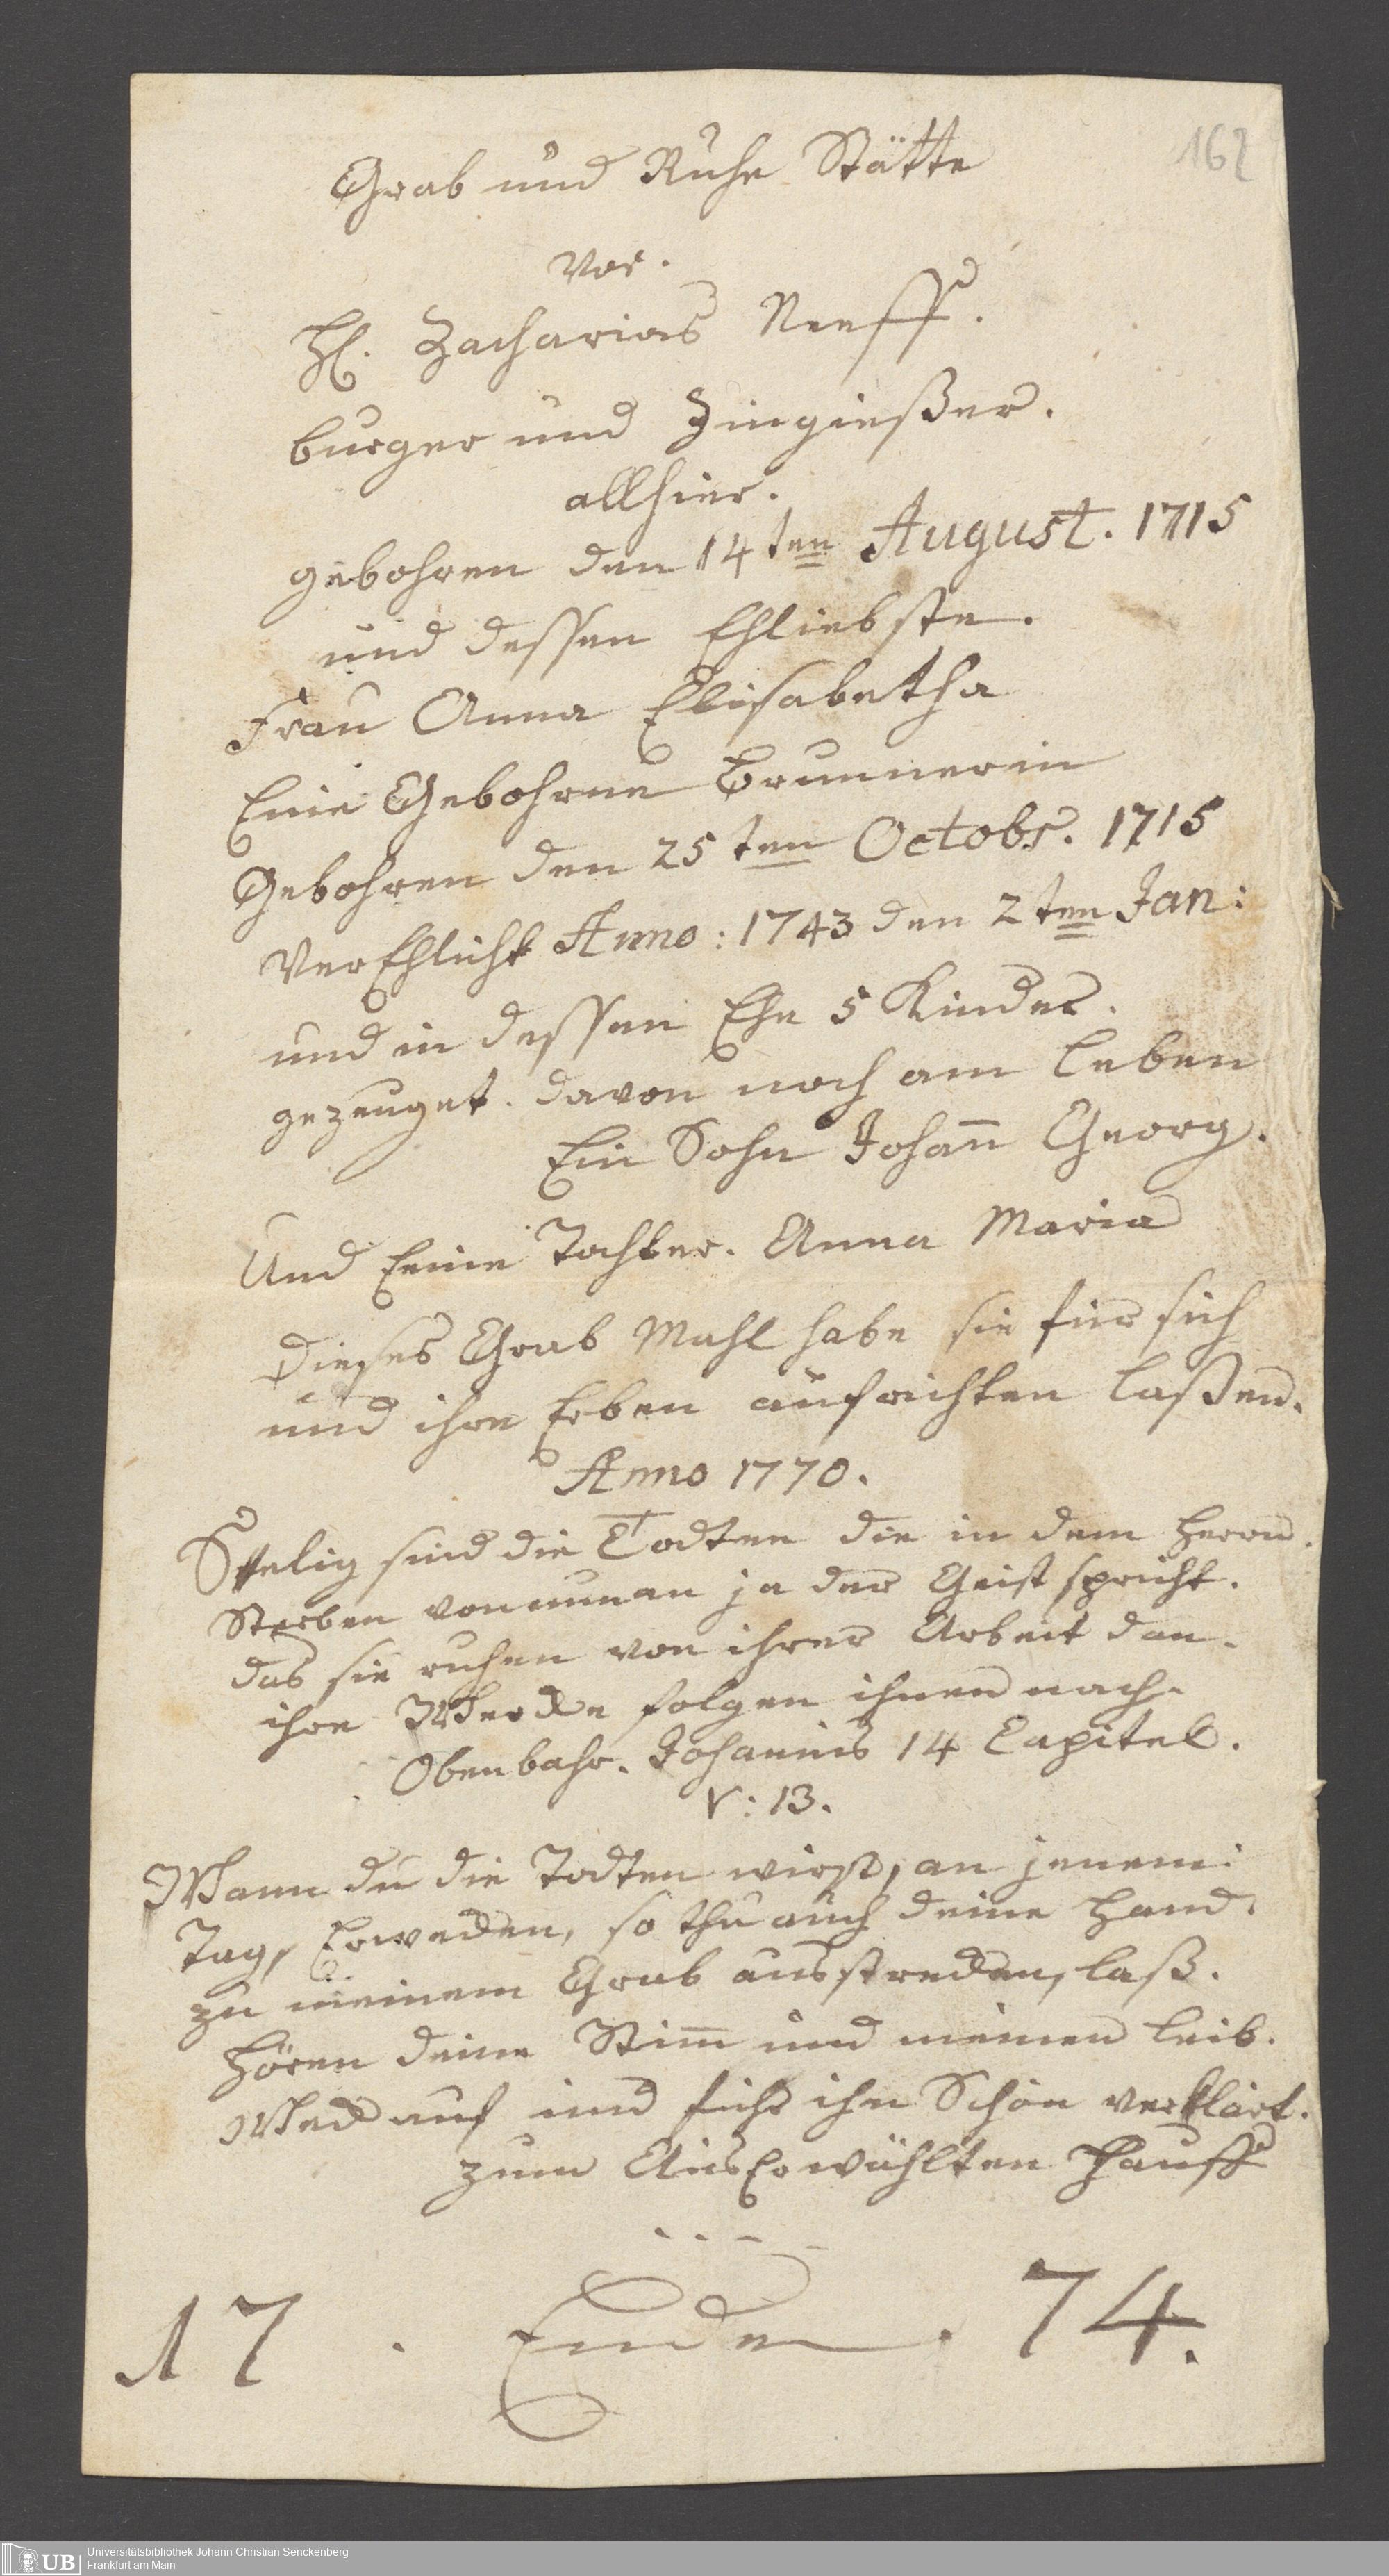 162
Grab und Ruhe Stätte
vor.
H. Zacharias Neeff.
burger und Zingießer.
allhier.
gebohren den 14ten August. 1715
und dessen Ehliebste.
Frau Anna Elisabetha
Eine Gebohrne Brunnerin
Gebohren den 25ten Octobr. 1715
VerEhlicht Anno: 1743 den 2ten Jan:
und in dessen Ehe 5 Kinder.
gezeuget. davon noch am leben
Ein Sohn Johann Georg.
Und Eine Tochter. Anna Maria
Dieses Grab Mahl habe sie für sich
und ihre Erben aufrichten laßen.
Anno 1770.
Seelig sind die Todten die in dem Herrn.
Sterben von nun an ja der Geist spricht.
das sie ruhen von ihrer Arbeit dan.
ihre Wercke folgen ihnen nach.
Obenbahr. Johannis 14 Capitel.
V: 13.
Wann du die Todten wirst, an jenem.
Tag, Erwecken, so thu auch deine Hand.
zu meinem Grab ausstrecken, laß.
hören deine Stimm und meinen leib.
Weck auf und führ ihn Schön verklärt.
zum AusErwählten Hauff
17 . Ende . 74.
UB Universitätsbibliothek Johann Christian Senckenberg
Frankfurt am Main